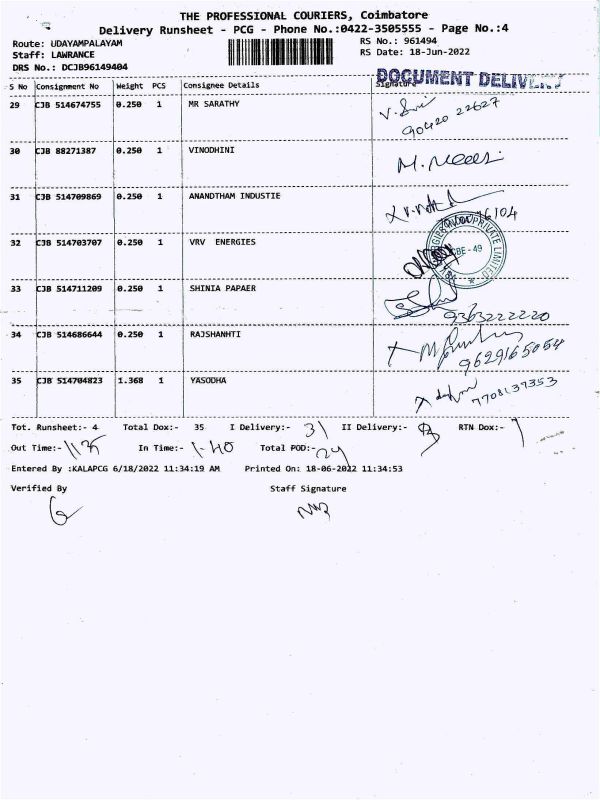 THE PROFESSIONAL COURIERS, Coimbatore
Delivery Runsheet - PCG - Phone No.:0422-3505555 - Page No.:4
Route: UDAYAMPALAYAM RS No.: 961494
Staff: LAWRANCE RS Date: 18-Jun-2022
DRS No.: DCJB96149404
DOCUMENT DELIVERY
S No Consignment No Weight PCS Consignee Details Signature
29 CJB 514674755 0.250 1 MR SARATHY
90420 22627
30 CJB 88271387 0.250 1 VINODHINI
31 CJB 514709869 0.250 1 ANANDTHAM INDUSTIE
32 CJB 514703707 0.250 1 VRV ENERGIES
PRIVATE LIMITED
CBE - 49
33 CJB 514711209 0.250 1 SHINIA PAPAER
9363222220
34 CJB 514686644 0.250 1 RAJSHANHTI
9629165054
35 CJB 514704823 1.368 1 YASODHA
7708137353
Tot. Runsheet:- 4 Total Dox:- 35 I Delivery:- 31 II Delivery:- RTN Dox:-
Out Time:- In Time:- 1-40 Total POD:-
Entered By :KALAPCG 6/18/2022 11:34:19 AM Printed On: 18-06-2022 11:34:53
Verified By Staff Signature